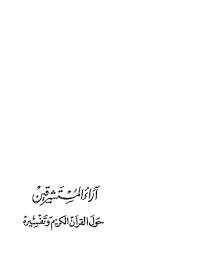 آراء المستشرقين
حول القرآن الكريم وتفسيره